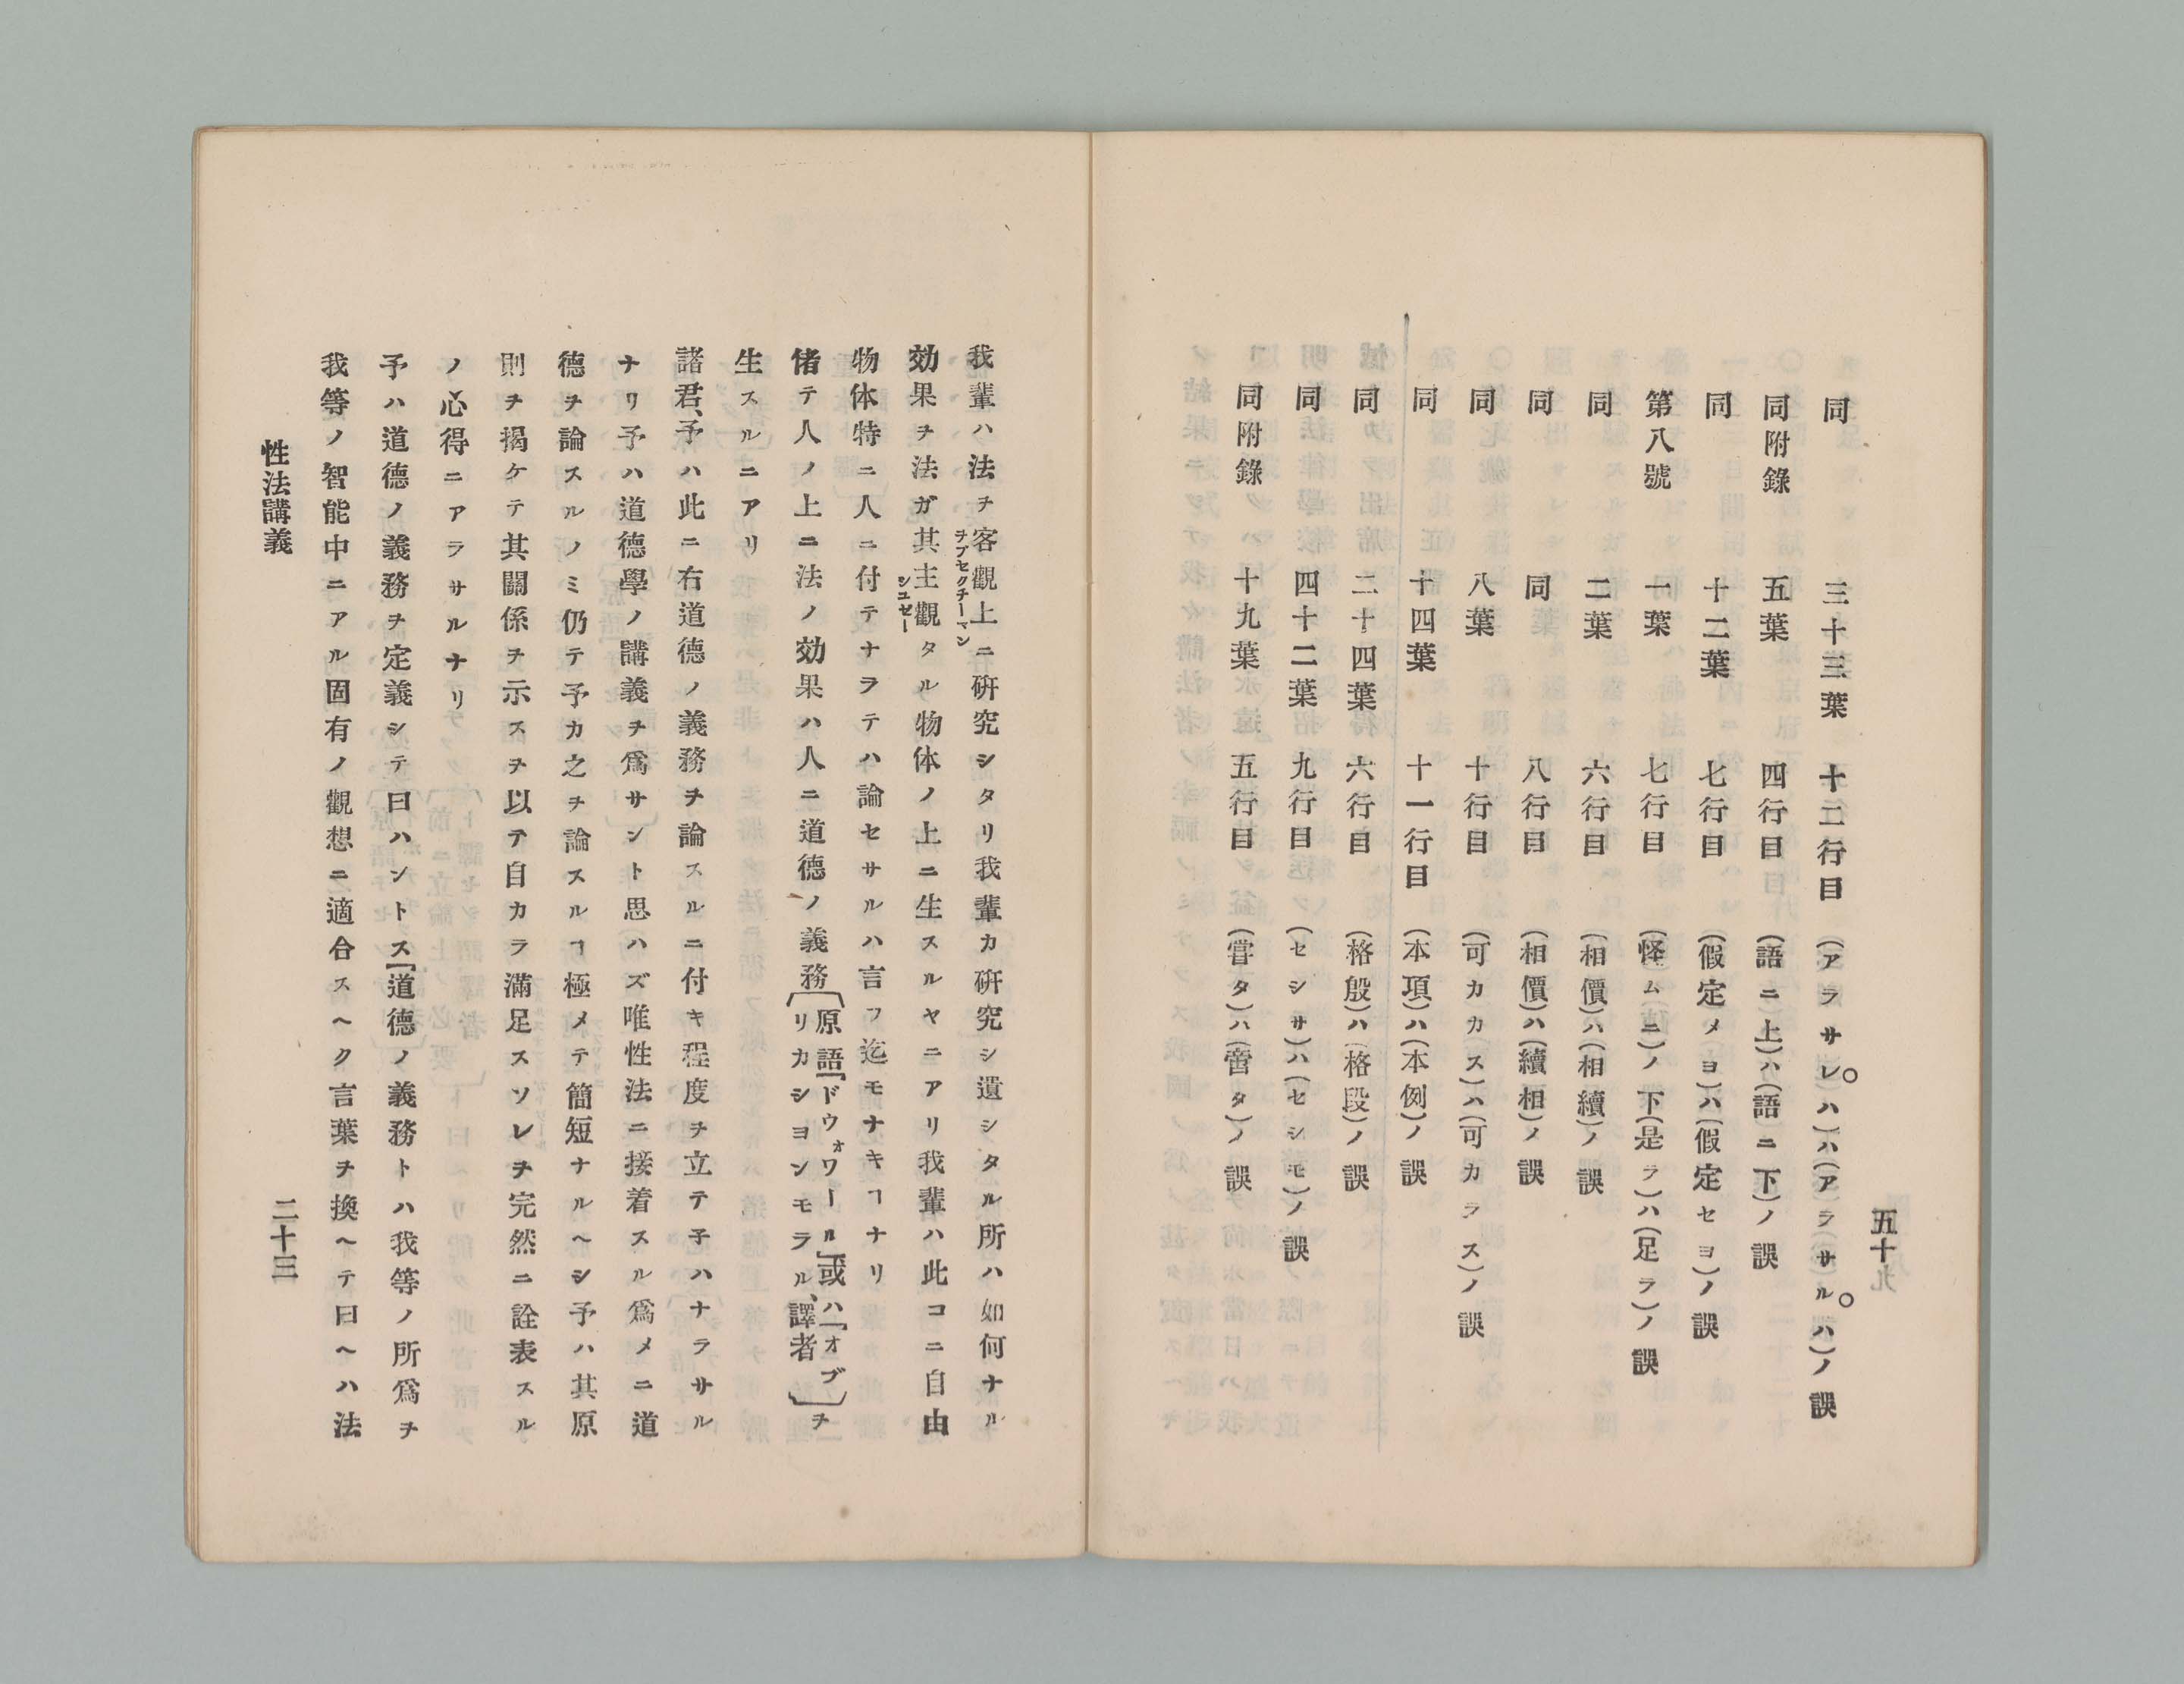 五十九
同 三十三葉 十二行目 (アラサレハ)ハ(アラサルハ)ノ誤
同附錄 五葉 四行目 (語ニ上)ハ(語ニ下)ノ誤
同 十二葉 七行目 (假定メヨ)ハ(假定セヨ)ノ誤
第八號 一葉 七行目 (怪ムニ)ノ下(是ラ)ハ(足ラ)ノ誤
同 二葉 六行目 (相價)ハ(相續)ノ誤
同 同 八行目 (相價)ハ(續相)ノ誤
同 八葉 十行目 (可カカス)ハ(可カラス)ノ誤
同 十四葉 十一行目 (本項)ハ(本例)ノ誤
同 二十四葉 六行目 (格殷)ハ(格段)ノ誤
同 四十二葉 九行目 (セシサ)ハ(セシモ)ノ誤
同附錄 十九葉 五行目 (嘗タ)ハ(啻タ)ノ誤
我輩ハ法ヲ客觀上ニ硏究シタリ我輩カ硏究シ遺シタル所ハ如何ナル
ヲブセクチーマン
効果ヲ法ガ其主觀タル物体ノ上ニ生スルヤニアリ我輩ハ此コニ自由
シユゼー
物体特ニ人ニ付テナラテハ論セサルハ言フ迄モナキヿナリ
偖テ人ノ上ニ法ノ効果ハ人ニ道德ノ義務〔原語「ドウォワール」或ハ「オブ
リカシヨンモラル、譯者〕ヲ
生スルニアリ
諸君、予ハ此ニ右道德ノ義務ヲ論スルニ付キ程度ヲ立テ子ハナラサル
ナリ予ハ道德學ノ講義ヲ爲サント思ハズ唯性法ニ接着スル爲メニ道
德ヲ論スルノミ仍テ予カ之ヲ論スルヿ極メテ簡短ナルヘシ予ハ其原
則ヲ揭ケテ其關係ヲ示スヲ以テ自カラ滿足スソレヲ完然ニ詮表スル
ノ心得ニアラサルナリ
予ハ道德ノ義務ヲ定義シテ曰ハントス「道德ノ義務トハ我等ノ所爲ヲ
我等ノ智能中ニアル固有ノ觀想ニ適合スヘク言葉ヲ換ヘテ曰ヘハ法
性法講義
二十三